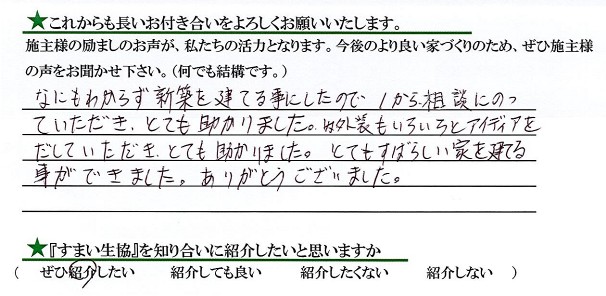 ★これからも長いお付き合いをよろしくお願いいたします。
施主様の励ましのお声が、私たちの活力となります。今後のより良い家づくりのため、ぜひ施主様
の声をお聞かせ下さい。(何でも結構です。)
なにもわからず新築を建てる事にしたので1から相談にのっ
ていただき、とても助かりました。内外装もいろいろとアイディアを
だしていただき、とても助かりました。とてもすばらしい家を建てる
事ができました。ありがとうございました。
★『すまい生協』を知り合いに紹介したいと思いますか
( ぜひ紹介したい 紹介しても良い 紹介したくない 紹介しない )